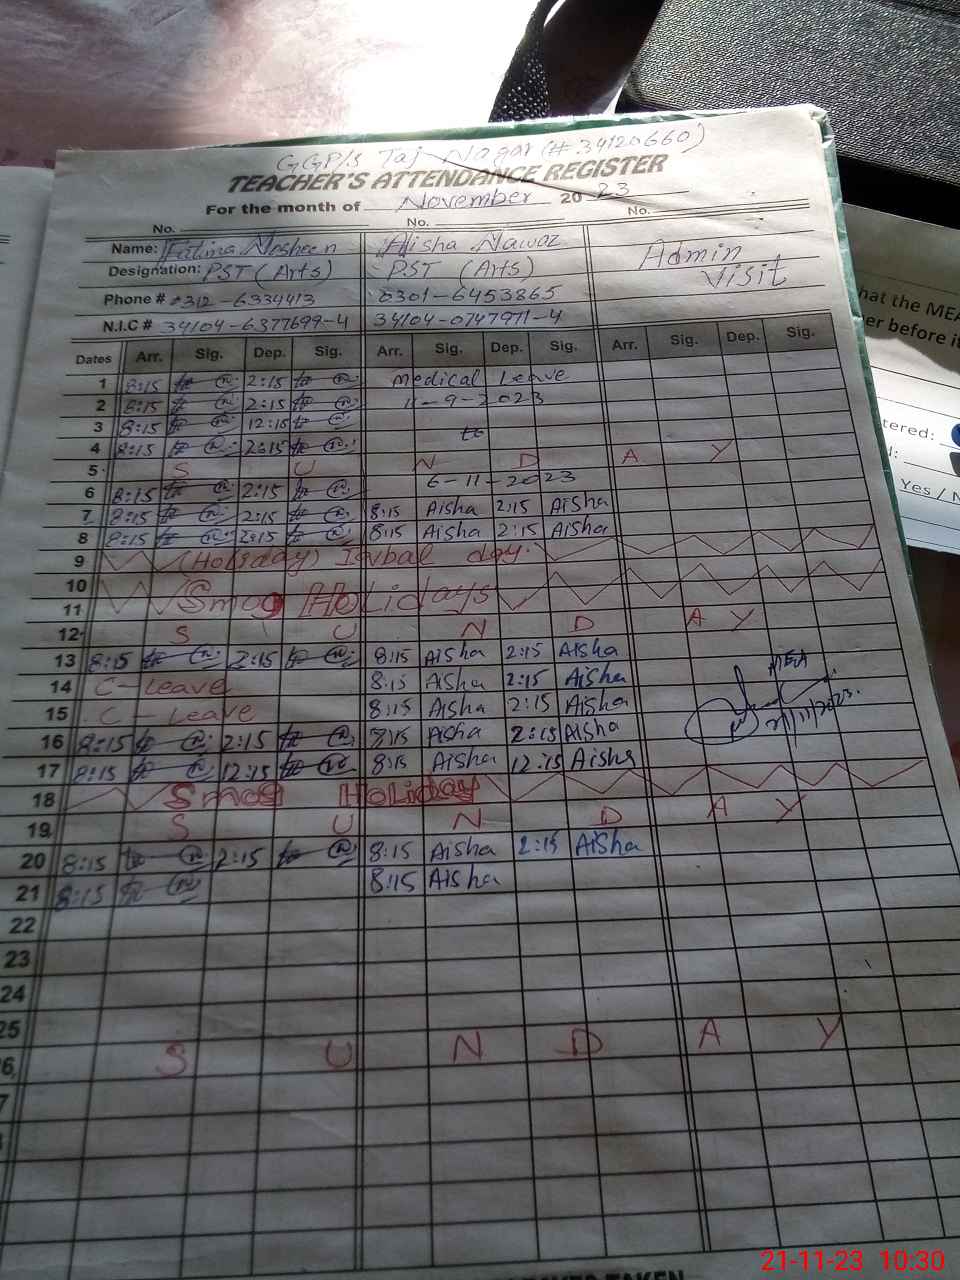 GGP/S Taj Nagar (# 34120660)
TEACHER'S ATTENDANCE REGISTER
For the month of November 20 23
No. No. No.
Name: Fatima Nosheen Aisha Nawaz Admin
Designation: PST (Arts) PST (Arts) Visit
Phone # 0312-6334413 0301-6453865
N.I.C # 34104-6377699-4 34104-0747971-4
Dates Arr. Sig. Dep. Sig. Arr. Sig. Dep. Sig. Arr. Sig. Dep. Sig.
1 8:15 2:15 Medical Leave
2 8:15 2:15 2023
3 8:15 12:15
4 8:15 2:15 to
5 S U N D A Y
6 8:15 2:15 6-11-2023
7 8:15 2:15 8:15 Aisha 2:15 Aisha
8 8:15 2:15 8:15 Aisha 2:15 Aisha
9 (Holiday) Iqbal day.
10 Smog Holidays
11
12 S U N D A Y
13 8:15 2:15 8:15 Aisha 2:15 Aisha
14 C-Leave 8:15 Aisha 2:15 Aisha MEA
15 C-Leave 8:15 Aisha 2:15 Aisha 21/11/2023.
16 8:15 2:15 8:15 Aisha 2:15 Aisha
17 8:15 12:15 8:15 Aisha 12:15 Aisha
18 Smog Holiday
19 S U N D A Y
20 8:15 2:15 8:15 Aisha 2:15 Aisha
21 8:15 8:15 Aisha
22
23
24
25
6 S U N D A Y
7
hat the MEA
er before it
tered:
d:
Yes / N
21-11-23 10:30